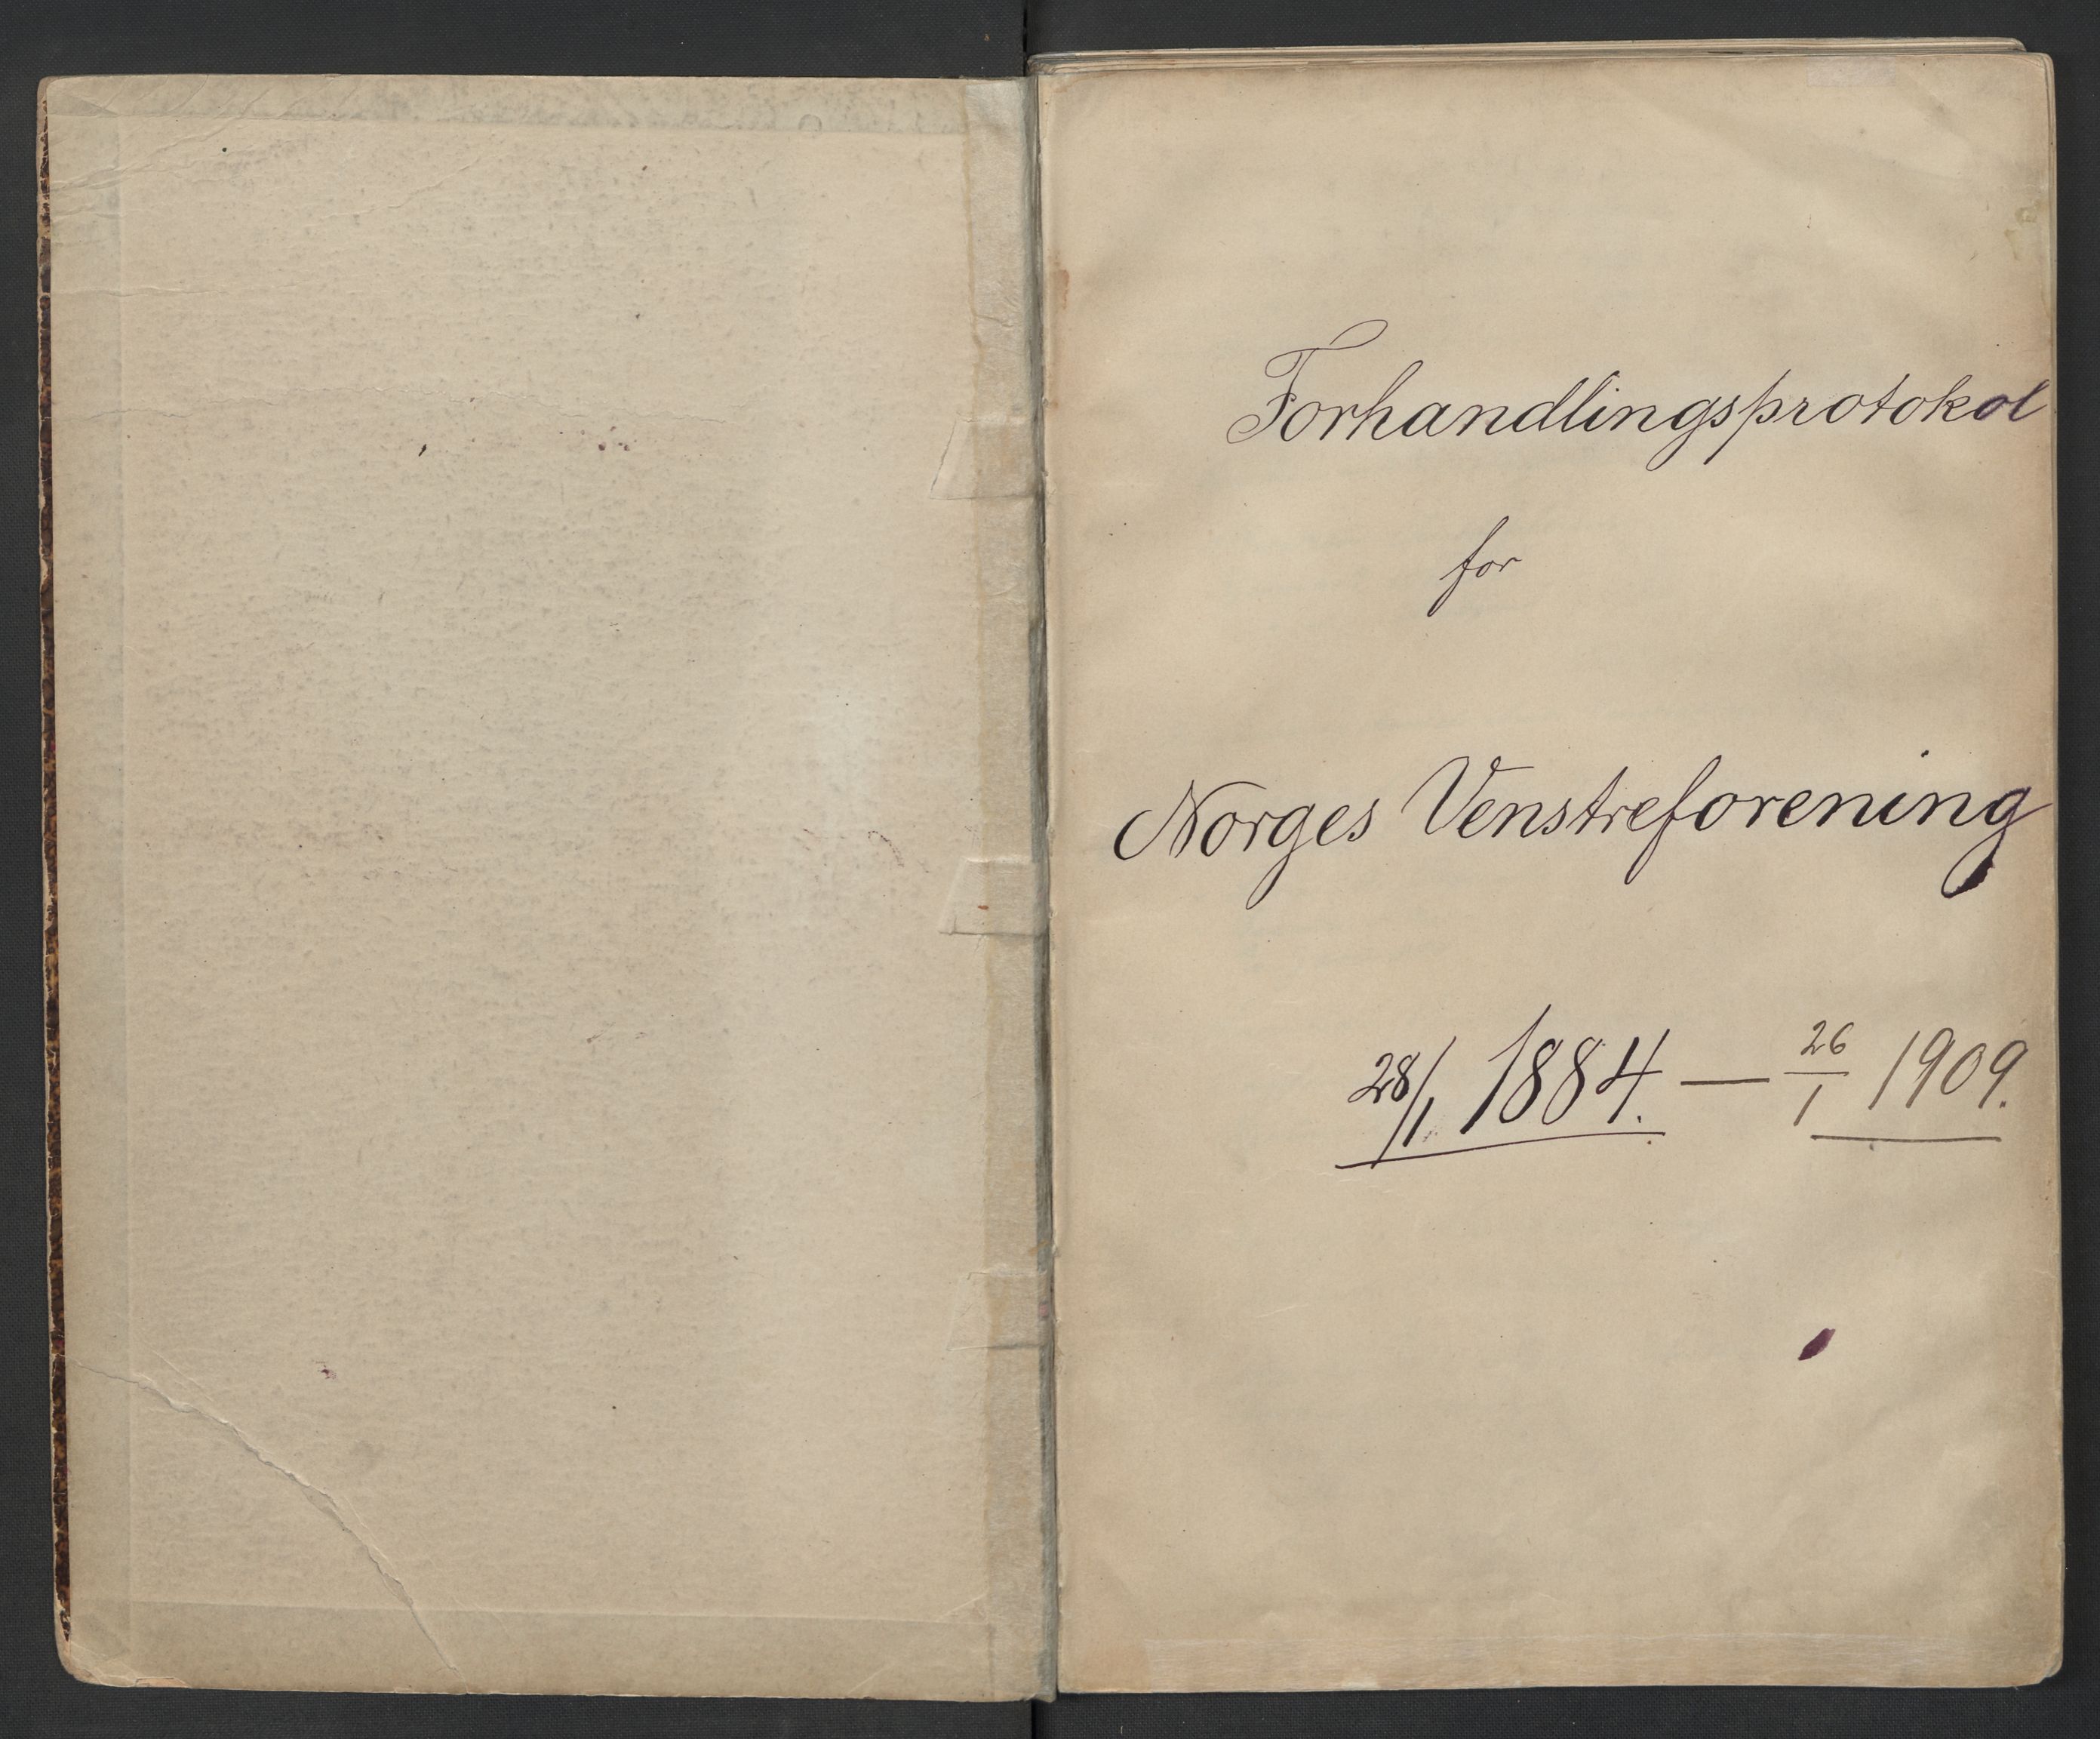 Forhandlingsprotokol
for
Norges Venstreforening
28/1 1884. — 26/1 1909.